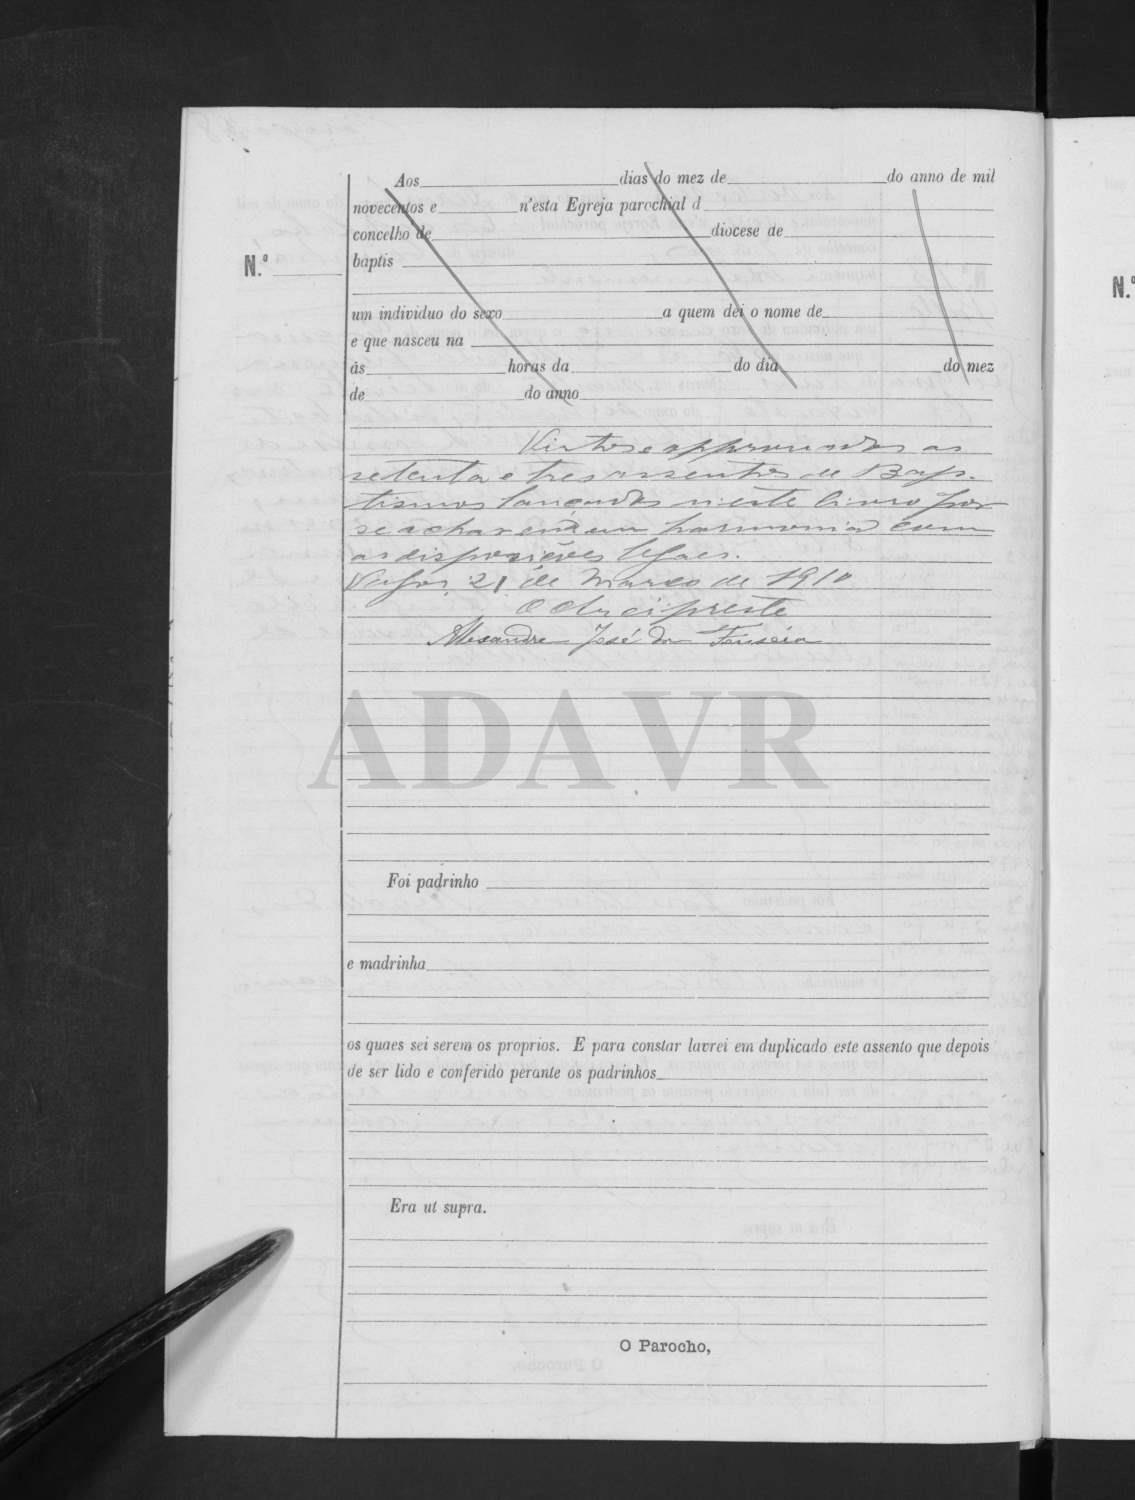 Aos dias do mez de do anno de mil
novecentos e n'esta Egreja parochial d
concelho de diocese de
N.º
baptis
um individuo do sexo a quem dei o nome de
e que nasceu na
ás horas da do dia do mez
de do anno
Vistos e approvados os
setenta e tres assentos de Bap-
tismos lançados n'este livro por
se acharem em harmonia com
as disposições legaes.
Vagos, 21 de Março de 1910
O Arcipreste
Alexandre José da Fonseca
ADAVR
Foi padrinho
e madrinha
os quaes sei serem os proprios. E para constar lavrei em duplicado este assento que depois
de ser lido e conferido perante os padrinhos
Era ut supra.
O Parocho,
N.º